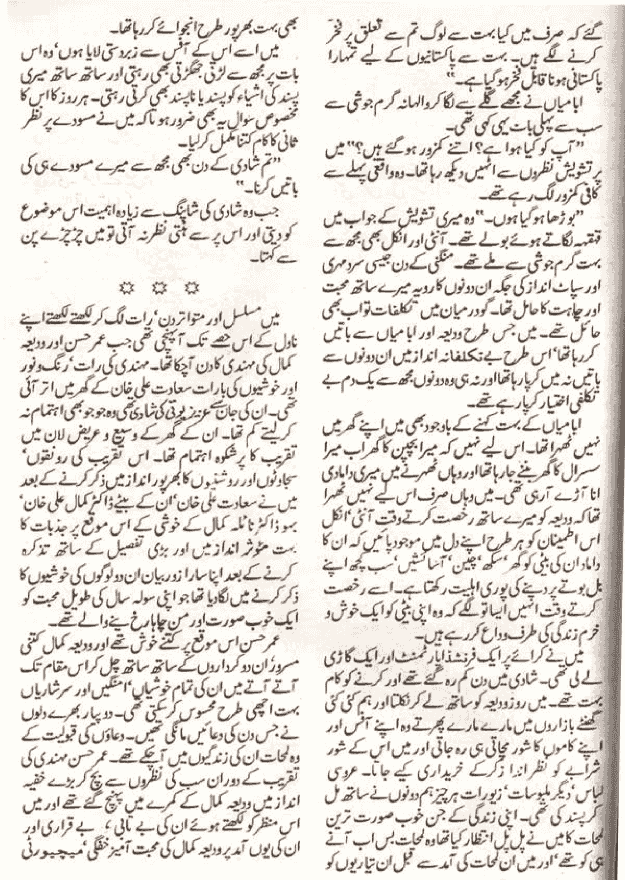 گئے کہ صرف میں کیا بہت سے لوگ تم سے تعلق پر فخر
کرنے لگے ہیں۔ بہت سے پاکستانیوں کے لیے تمہارا
پاکستانی ہونا قابل فخر ہو گیا ہے۔"
ابا میاں نے مجھے گلے سے لگا کر والہانہ گرم جوشی سے
سب سے پہلی بات یہی کہی تھی۔
"آپ کو کیا ہوا ہے؟ اتنے کمزور ہو گئے ہیں؟" میں
پر تشویش نظروں سے انہیں دیکھ رہا تھا۔ وہ واقعی پہلے سے
کافی کمزور لگ رہے تھے۔
"بوڑھا ہو گیا ہوں۔" وہ میری تشویش کے جواب میں
قہقہہ لگاتے ہوئے بولے تھے۔ آنٹی اور انکل بھی مجھ سے
بہت گرم جوشی سے ملے تھے۔ منگنی کے دن جیسی سرد مہری
اور سپاٹ انداز کی جگہ ان دونوں کا رویہ میرے ساتھ محبت
اور چاہت کا حامل تھا۔ گو درمیان میں تکلفات تو اب بھی
حائل تھے۔ میں جس طرح ودیعہ اور ابا میاں سے باتیں
کر رہا تھا' اس طرح بے تکلفانہ انداز میں ان دونوں سے
باتیں نہ میں کر پا رہا تھا اور نہ ہی وہ دونوں مجھ سے یک دم بے
تکلفی اختیار کر پا رہے تھے۔
ابا میاں کے بہت کہنے کے باوجود بھی میں اپنے گھر میں
نہیں ٹھہرا تھا۔ اس لیے نہیں کہ میرا بچپن کا گھر اب میرا
سسرال کا گھر بننے جا رہا تھا اور وہاں ٹھہرنے میں میری دامادی
انا آڑے آ رہی تھی۔ میں وہاں صرف اس لیے نہیں ٹھہرا
تھا کہ ودیعہ کو میرے ساتھ رخصت کرتے وقت آنٹی' انکل
اس اطمینان کو ہر طرح اپنے دل میں موجود پائیں کہ ان کا
داماد ان کی بیٹی کو گھر' سکھ' چین' آسائشیں' سب کچھ اپنے
بل بوتے پر دینے کی پوری اہلیت رکھتا ہے۔ اسے رخصت
کرتے وقت انہیں ایسا تو لگے کہ وہ اپنی بیٹی کو ایک خوش و
خرم زندگی کی طرف وداع کر رہے ہیں۔
میں نے کرائے پر ایک فرنشڈ اپارٹمنٹ اور ایک گاڑی
لے لی تھی۔ شادی میں دن کم رہ گئے تھے اور کرنے کو کام
بہت تھے۔ میں روز ودیعہ کو ساتھ لے کر نکلتا اور ہم کئی کئی
گھنٹے بازاروں میں مارے مارے پھرتے وہ اپنے آفس اور
اپنے کاموں کا شور مچاتی ہی رہ جاتی اور میں اس کے شور
شرابے کو نظر انداز کر کے خریداری کیے جاتا۔ عروسی
لباس' دیگر ملبوسات' زیورات ہر چیز ہم دونوں نے ساتھ مل
کر پسند کی تھی۔ اپنی زندگی کے جن خوب صورت ترین
لمحات کا میں نے پل پل انتظار کیا تھا وہ لمحات بس اب آنے
ہی کو تھے' اور میں ان لمحات کی آمد سے قبل ان تیاریوں کو
بھی بہت بھرپور طرح انجوائے کر رہا تھا۔
میں اسے اس کے آفس سے زبردستی لایا ہوں' وہ اس
بات پر مجھ سے لڑتی جھگڑتی بھی رہتی اور ساتھ ساتھ میری
پسند کی اشیاء کو پسند یا ناپسند بھی کرتی رہتی۔ ہر روز کا اس کا
مخصوص سوال یہ بھی ضرور ہوتا کہ میں نے مسودے پر نظر
ثانی کا کام کتنا مکمل کر لیا۔
"تم شادی کے دن بھی مجھ سے میرے مسودے ہی کی
باتیں کرنا۔"
جب وہ شادی کی شاپنگ سے زیادہ اہمیت اس موضوع
کو دیتی اور اس پر سے ہٹتی نظر نہ آتی تو میں چڑچڑے پن
سے کہتا۔
میں مسلسل اور متواتر دن' رات لگ کر لکھتے لکھتے اپنے
ناول کے اس حصے تک آ پہنچی تھی جب عمر حسن اور ودیعہ
کمال کی مہندی کا دن آ چکا تھا۔ مہندی کی رات' رنگ و نور
اور خوشیوں کی بارات سعادت علی خان کے گھر میں اتر آئی
تھی۔ ان کی جان سے عزیز پوتی کی شادی تھی وہ جو جو بھی اہتمام نہ
کر لیتے کم تھا۔ ان کے گھر کے وسیع و عریض لان میں
تقریب کا پر شکوہ اہتمام تھا۔ اس تقریب کی رونقوں'
سجاوٹوں اور روشنیوں کا بھرپور انداز میں ذکر کرنے کے بعد
میں نے سعادت علی خان' ان کے بیٹے ڈاکٹر کمال علی خان'
بہو ڈاکٹر نائلہ کمال کے خوشی کے اس موقع پر جذبات کا
بہت موثر انداز میں اور بڑی تفصیل کے ساتھ تذکرہ
کرنے کے بعد اپنا سارا زور بیان ان دو لوگوں کی خوشیوں کا
ذکر کرنے میں لگا دیا تھا جو اپنی سولہ سال کی طویل محبت کو
ایک خوب صورت اور من چاہا رخ دینے والے تھے۔
عمر حسن اس موقع پر کتنے خوش تھے اور ودیعہ کمال کتنی
مسرور' ان دو کرداروں کے ساتھ ساتھ چل کر اس مقام تک
آتے آتے میں ان کی تمام خوشیاں' امنگیں اور سرشاریاں
بہت اچھی طرح محسوس کر سکتی تھی۔ دو پیار بھرے دلوں
نے جس دن کی دعائیں مانگی تھیں۔ دعاؤں کی قبولیت کے
وہ لمحات ان کی زندگیوں میں آ چکے تھے۔ عمر حسن مہندی کی
تقریب کے دوران سب کی نظروں سے بچ کر بڑے خفیہ
انداز میں ودیعہ کمال کے کمرے میں پہنچ گئے تھے اور میں
اس منظر کو لکھتے ہوئے ان کی بے تابی' بے قراری اور
ان کی یوں آمد پر ودیعہ کمال کی محبت آمیز خفگی' میچیورٹی